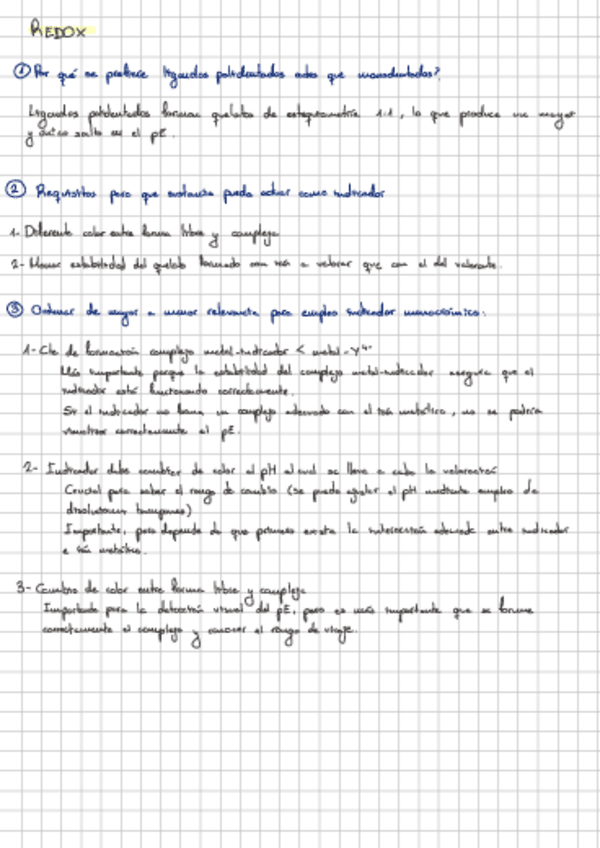 REDOX
① Por qué se prefiere ligandos polidentados antes que monodentados?
Ligandos polidentados forman quelatos de estequiometría 1:1, lo que produce un mayor
y único salto en el pE.
② Requisitos para que sustancia pueda actuar como indicador
1- Diferente color entre forma libre y compleja
2- Menor estabilidad del quelato formado con ión a valorar que con el del valorante.
③ Ordenar de mayor a menor relevancia para empleo indicador monocrómico:
1- Cte de formación complejo metal-indicador < metal-Y⁴⁻
Más importante porque la estabilidad del complejo metal-indicador asegura que el
indicador está funcionando correctamente.
Si el indicador no forma un complejo adecuado con el ión metálico, no se podría
mostrar correctamente el pE.
2- Indicador debe cambiar de color al pH al cual se lleva a cabo la valoración
Crucial para saber el rango de cambio (se puede ajustar el pH mediante empleo de
disoluciones tampones)
Importante, pero depende de que primero exista la interacción adecuada entre indicador
e ión metálico.
3- Cambio de color entre forma libre y compleja
Importante para la detección visual del pE, pero es más importante que se forme
correctamente el complejo y conocer el rango de viraje.